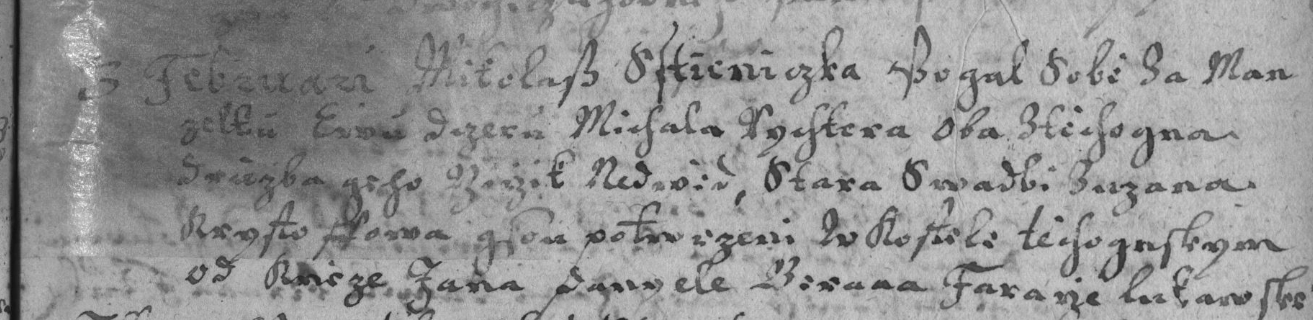 3 Februari Mikolaß Sstieniczka Pogal Sobě Za Man
zelku Evu dczeru Michala Rychtera Oba Ztichogna
druzba geho Nedwied, Stara Swadbi Zuzana
Krystoffowa gsou potwrzeni W Kostele tichognskym
od Knieze Jana Danyele Berana Faraze lukawske